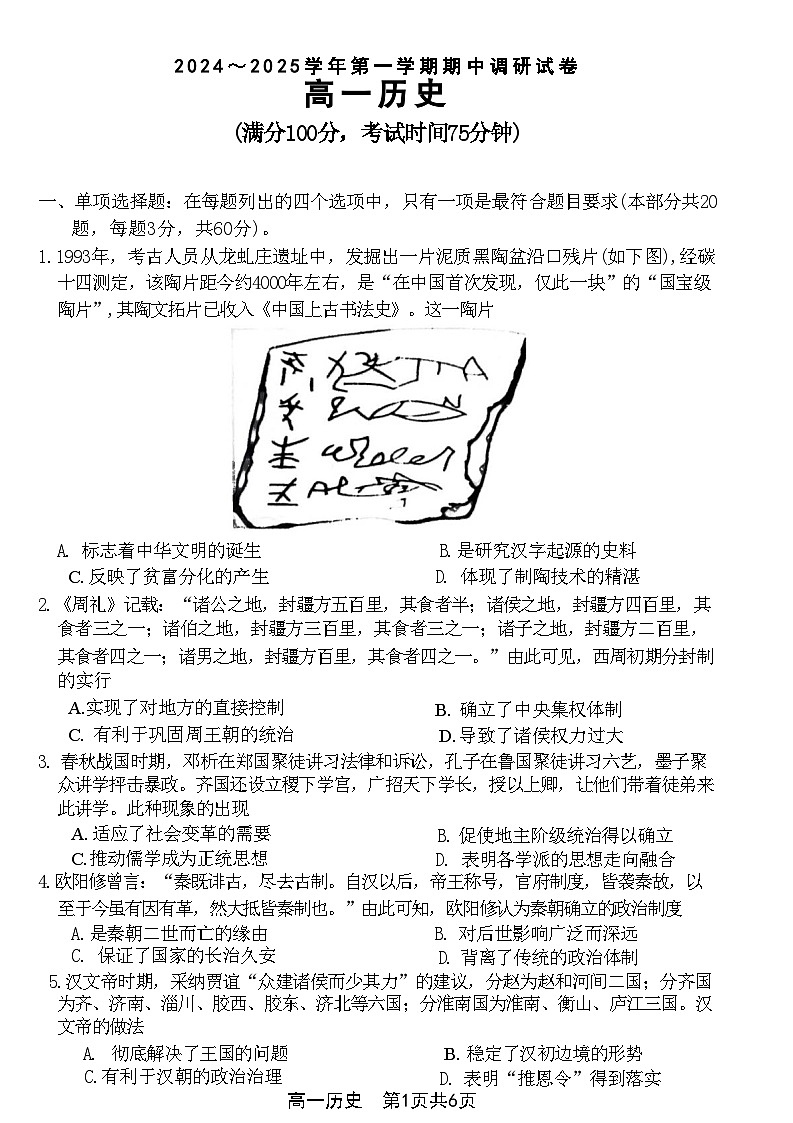 2024～2025学年第一学期期中调研试卷
高一历史
(满分100分，考试时间75分钟)
一、单项选择题：在每题列出的四个选项中，只有一项是最符合题目要求(本部分共20
题，每题3分，共60分)。
1.1993年，考古人员从龙虬庄遗址中，发掘出一片泥质黑陶盆沿口残片(如下图),经碳
十四测定，该陶片距今约4000年左右，是“在中国首次发现，仅此一块”的“国宝级
陶片”,其陶文拓片已收入《中国上古书法史》。这一陶片
A. 标志着中华文明的诞生 B.是研究汉字起源的史料
C.反映了贫富分化的产生 D. 体现了制陶技术的精湛
2.《周礼》记载：“诸公之地，封疆方五百里，其食者半；诸侯之地，封疆方四百里，其
食者三之一；诸伯之地，封疆方三百里，其食者三之一；诸子之地，封疆方二百里，
其食者四之一；诸男之地，封疆方百里，其食者四之一。”由此可见，西周初期分封制
的实行
A.实现了对地方的直接控制 B. 确立了中央集权体制
C. 有利于巩固周王朝的统治 D.导致了诸侯权力过大
3. 春秋战国时期，邓析在郑国聚徒讲习法律和诉讼，孔子在鲁国聚徒讲习六艺，墨子聚
众讲学抨击暴政。齐国还设立稷下学宫，广招天下学长，授以上卿，让他们带着徒弟来
此讲学。此种现象的出现
A.适应了社会变革的需要 B. 促使地主阶级统治得以确立
C.推动儒学成为正统思想 D. 表明各学派的思想走向融合
4.欧阳修曾言：“秦既诽古，尽去古制。自汉以后，帝王称号，官府制度，皆袭秦故，以
至于今虽有因有革，然大抵皆秦制也。”由此可知，欧阳修认为秦朝确立的政治制度
A.是秦朝二世而亡的缘由 B. 对后世影响广泛而深远
C. 保证了国家的长治久安 D. 背离了传统的政治体制
5.汉文帝时期，采纳贾谊“众建诸侯而少其力”的建议，分赵为赵和河间二国；分齐国
为齐、济南、淄川、胶西、胶东、济北等六国；分淮南国为淮南、衡山、庐江三国。汉
文帝的做法
A. 彻底解决了王国的问题 B.稳定了汉初边境的形势
C.有利于汉朝的政治治理 D. 表明“推恩令”得到落实
高一历史 第1页共6页